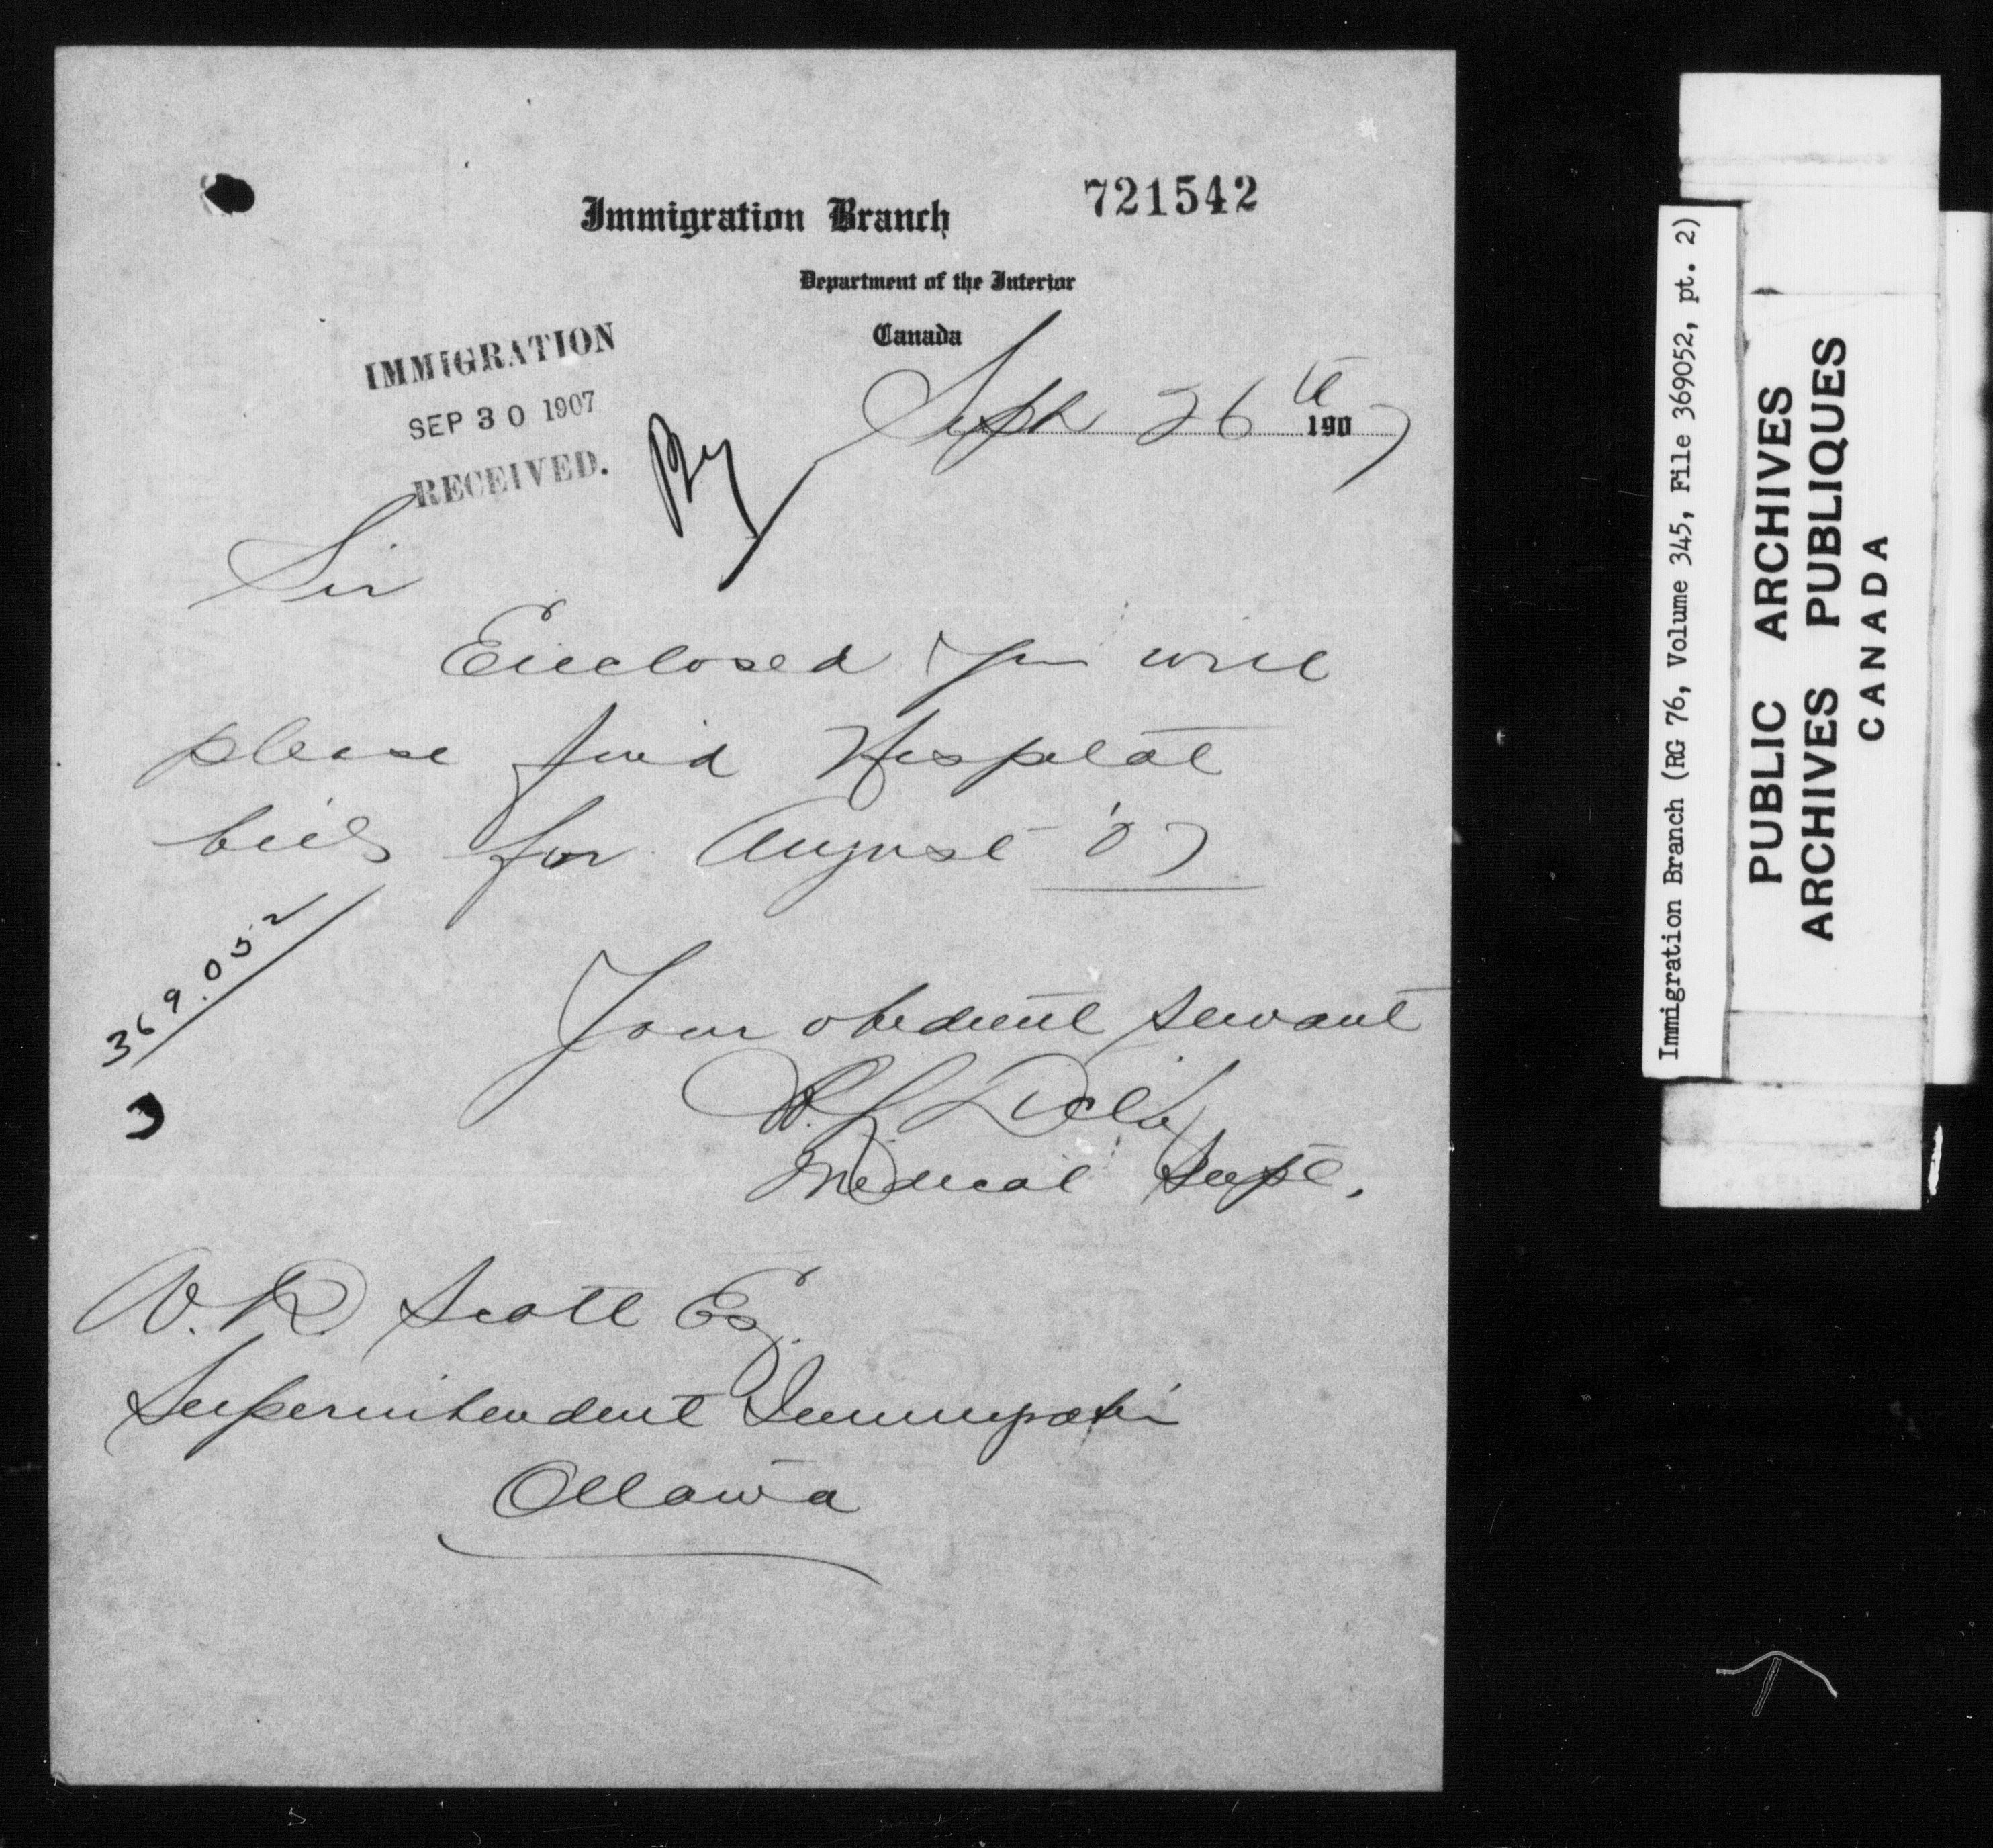 721542
Immigration Branch
Department of the Interior
Canada
IMMIGRATION
SEP 30 1907
RECEIVED.
Sept 26th 1907
Sir
Enclosed you will
please find Hospital
bills for August '07
369.052
Your obedient servant
Medical Supt.
W.R. Scott Esq.
Superintendent Immigration
Ottawa
Immigration Branch (RG 76, Volume 345, File 369052, pt. 2)
PUBLIC ARCHIVES
ARCHIVES PUBLIQUES
CANADA